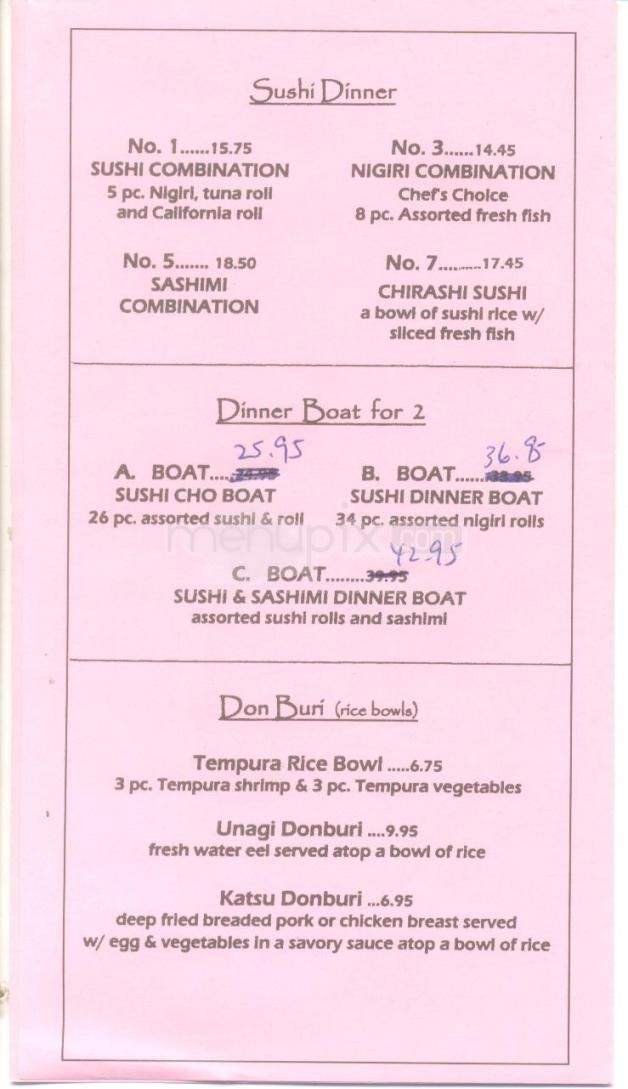 Sushi Dinner
No. 1......15.75
SUSHI COMBINATION
5 pc. Nigiri, tuna roll
and California roll
No. 3......14.45
NIGIRI COMBINATION
Chef's Choice
8 pc. Assorted fresh fish
No. 5....... 18.50
SASHIMI
COMBINATION
No. 7..........17.45
CHIRASHI SUSHI
a bowl of sushi rice w/
sliced fresh fish
Dinner Boat for 2
25.95
A. BOAT....
SUSHI CHO BOAT
26 pc. assorted sushi & roll
B. BOAT......33.95
SUSHI DINNER BOAT
34 pc. assorted nigiri rolls
menupix.com
42.95
C. BOAT........39.95
SUSHI & SASHIMI DINNER BOAT
assorted sushi rolls and sashimi
Don Buri (rice bowls)
Tempura Rice Bowl .....6.75
3 pc. Tempura shrimp & 3 pc. Tempura vegetables
Unagi Donburi ....9.95
fresh water eel served atop a bowl of rice
Katsu Donburi ...6.95
deep fried breaded pork or chicken breast served
w/ egg & vegetables in a savory sauce atop a bowl of rice